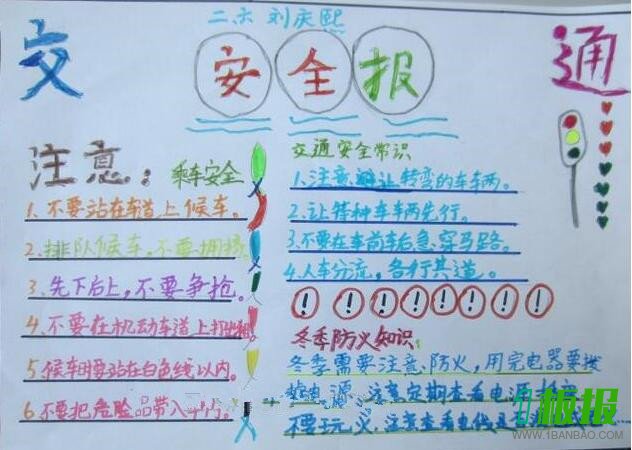 二六 刘庆熙
交 安全报 通
注意：乘车安全
1.不要站在车道上候车。
2.排队候车,不要拥挤。
3.先下后上,不要争抢。
4.不要在机动车道上打出租
5.候车时要站在白色线以内。
6.不要把危险品带入车内。
交通安全常识
1.注意避让转弯的车车两。
2.让特种车车两先行。
3.不要在车前车后急穿马路。
4.人车分流，各行其道。
! ! ! ! ! ! ! !
冬季防火知识:
冬季需要注意防火，用完电器要拨
掉电源,注意定期查看电源
不要玩火,注意查看电
板报
WWW.1BANBAO.COM